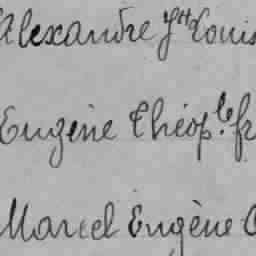 Alexandre Jh Louis
Eugène Théop.le fr
Marcel Eugène